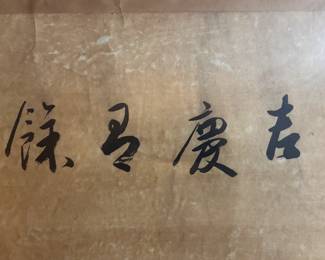 吉慶有餘